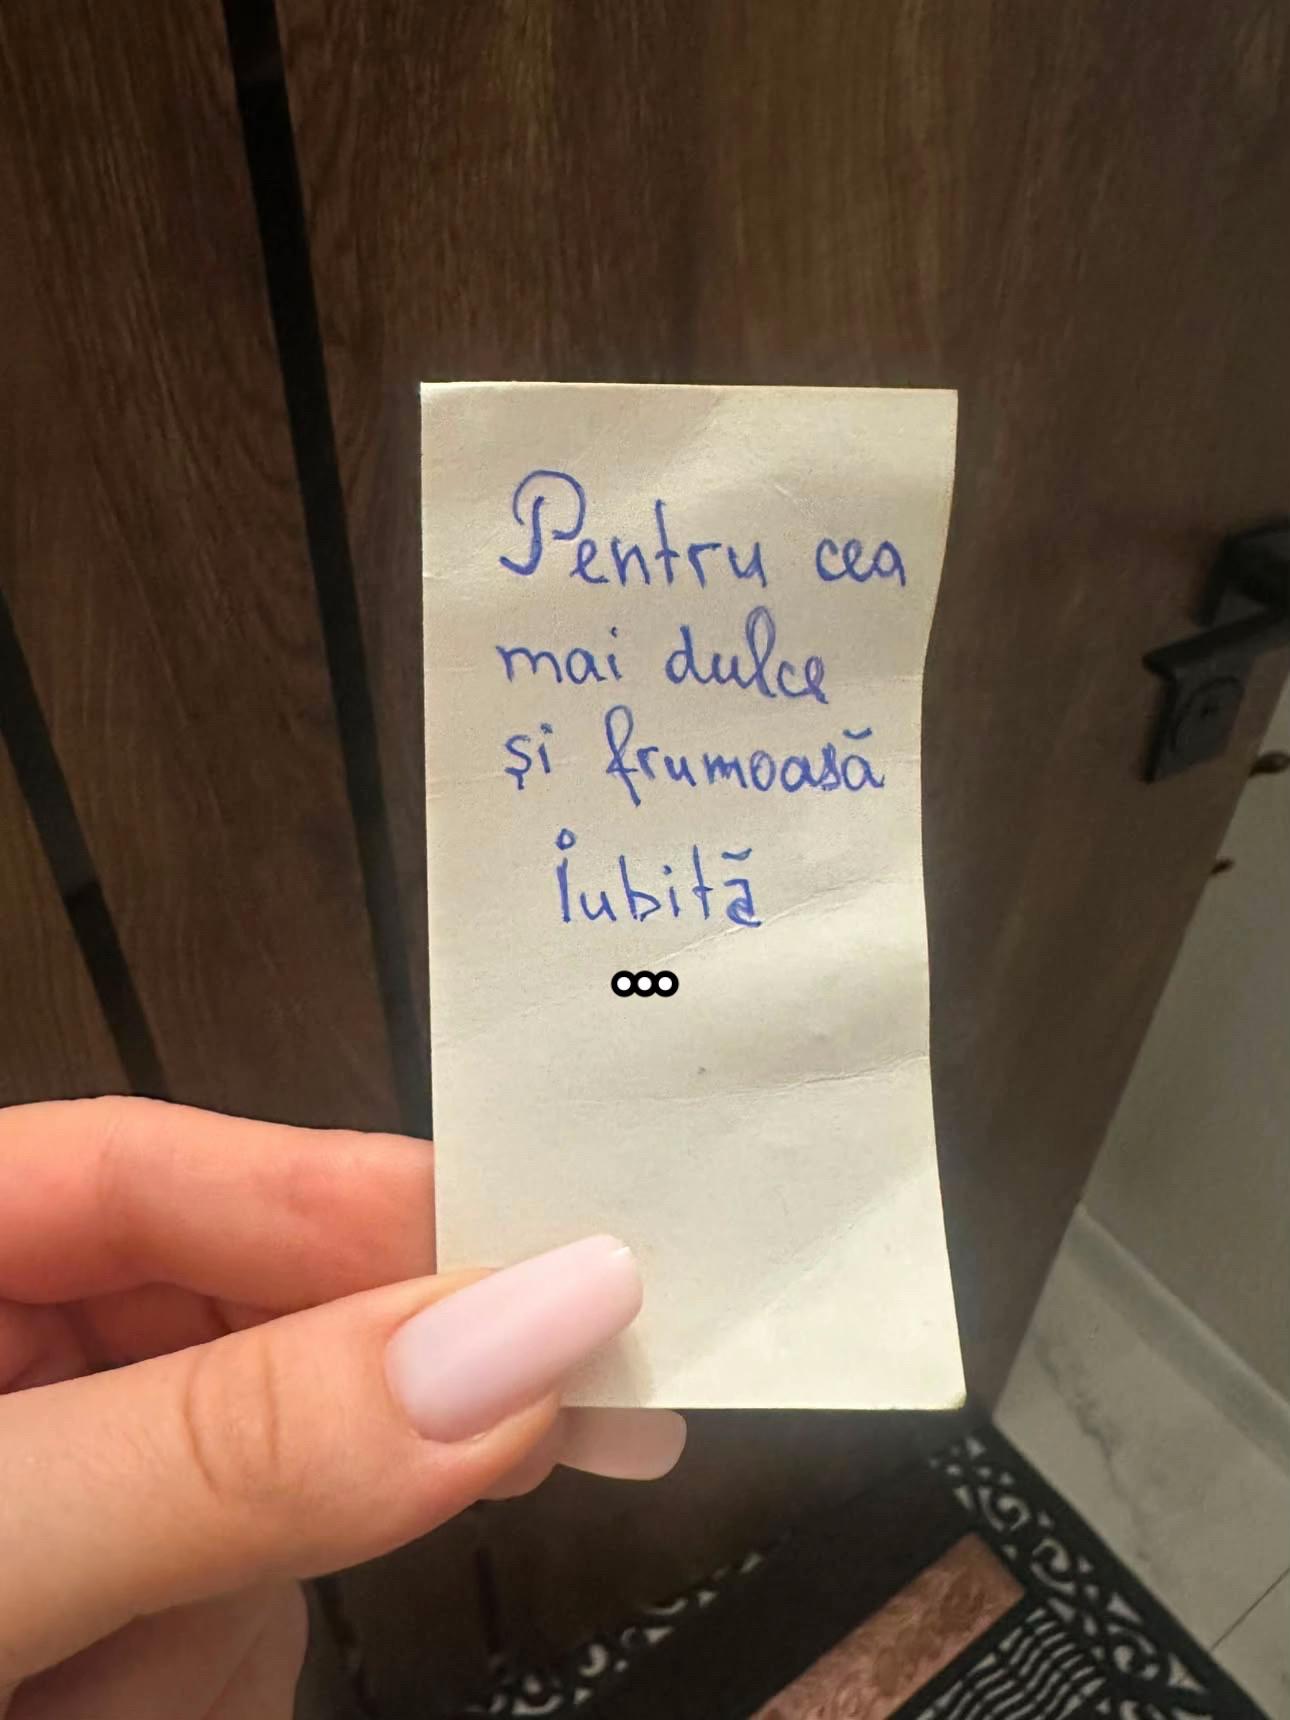 Pentru cea
mai dulce
și frumoasă
Iubită
...